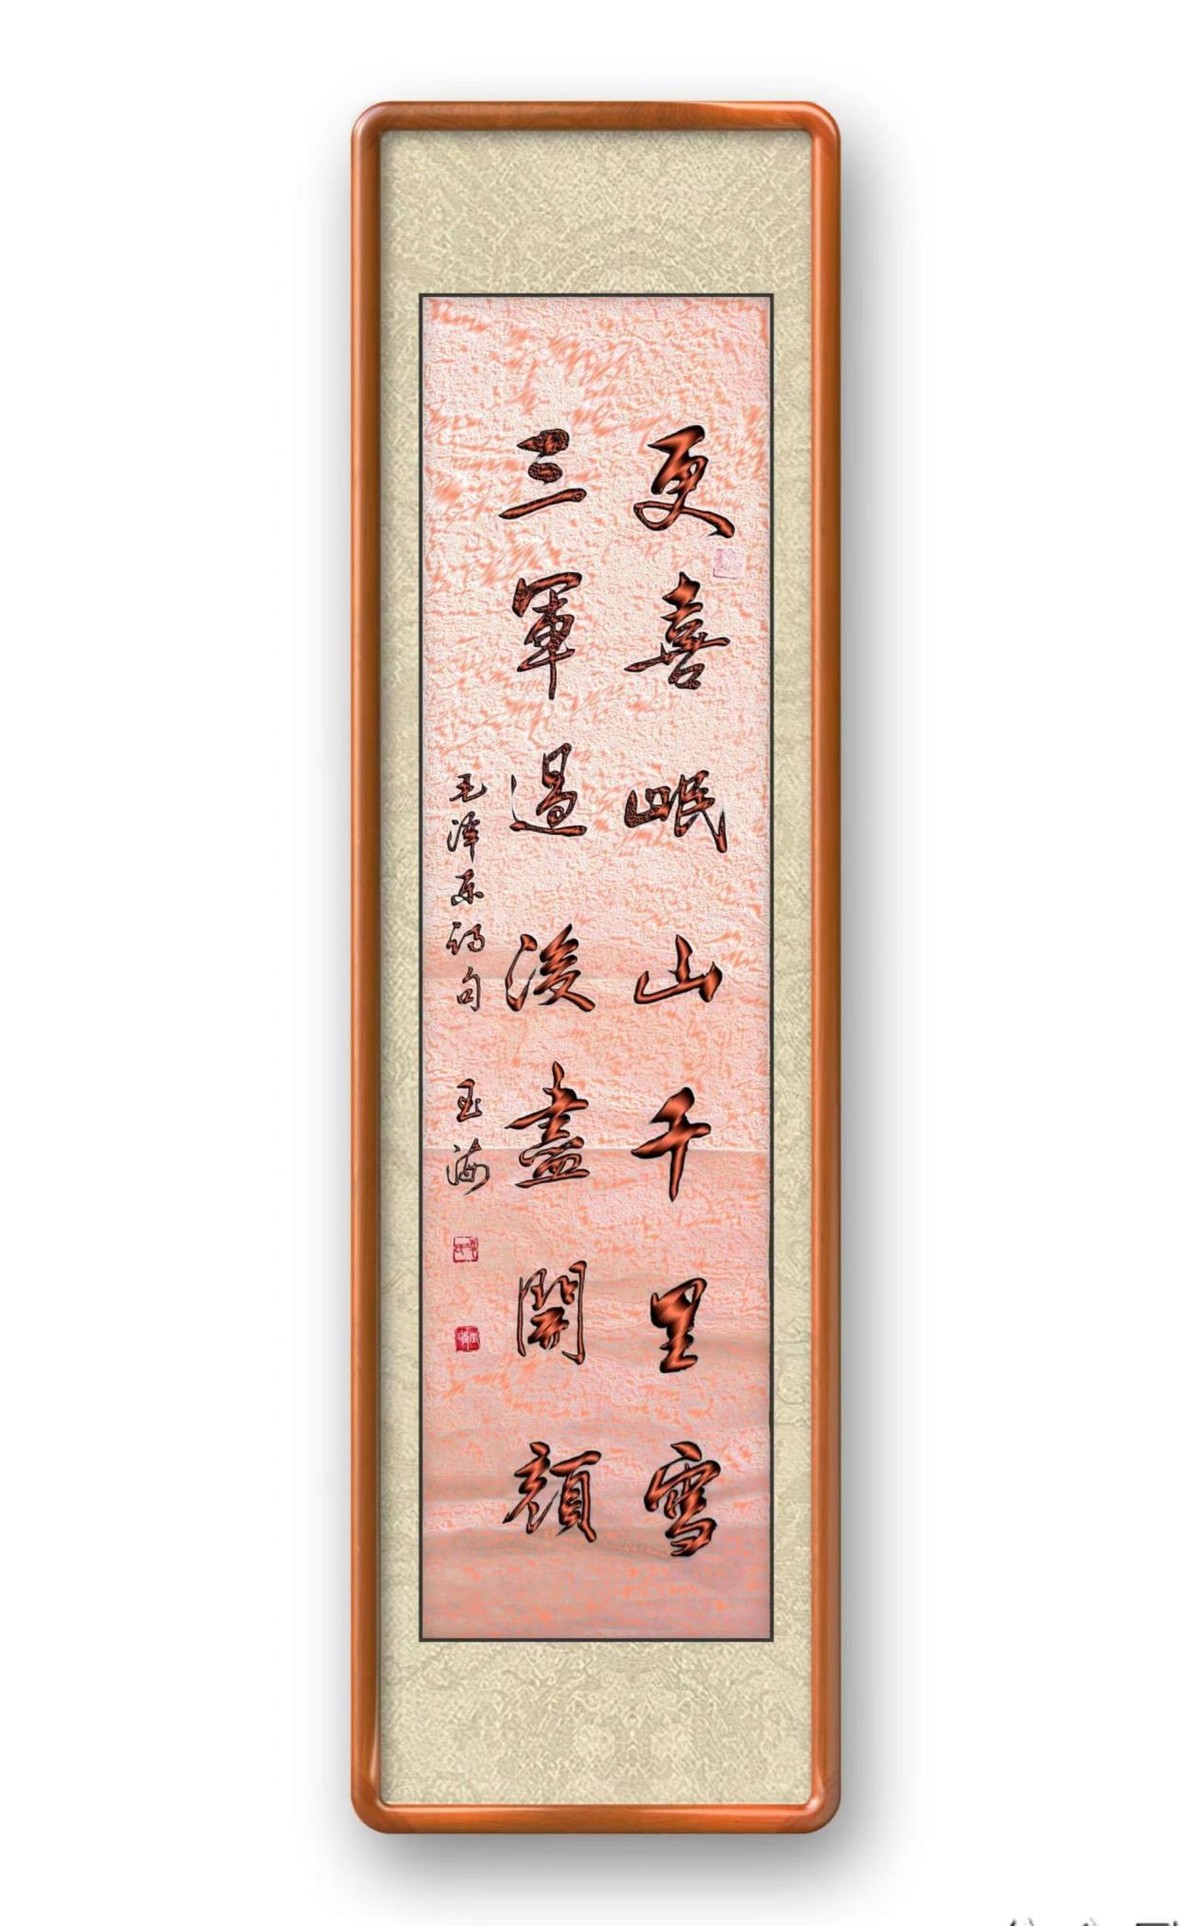 更喜岷山千里雪
三軍過後盡開顏
毛泽东詩句 玉海